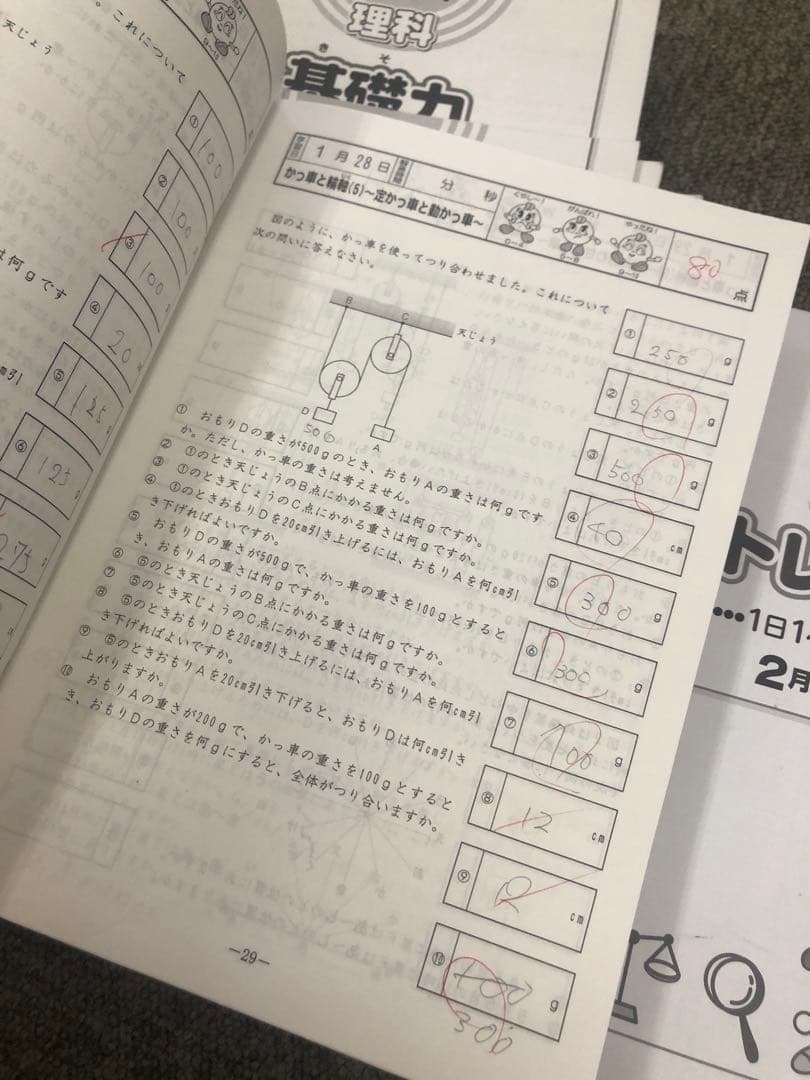 理科
きそ
基礎力
これについて
天じょう
9~10
①
100
②
100
③
100
は何gです
④
20
⑤
125
cm引
⑥
125
275
学習日
1月28日
分 秒
かっ車と輪軸(5)~定かっ車と動かっ車~
くやし~!
がんばれ!
やったね!
9~10
80点
図のように、かっ車を使ってつり合わせました。これについて
次の問いに答えなさい。
B
C
天じょう
D
500
A
① おもりDの重さが500gのとき、おもりAの重さは何gです
か。ただし、かっ車の重さは考えません。
② ①のとき天じょうのB点にかかる重さは何gですか。
③ ①のとき天じょうのC点にかかる重さは何gですか。
④ ①のときおもりDを20cm引き上げるには、おもりAを何cm引
き下げればよいですか。
⑤ おもりDの重さが500gで、かっ車の重さを100gとすると
き、おもりAの重さは何gですか。
⑥ ⑤のとき天じょうのB点にかかる重さは何gですか。
⑦ ⑤のとき天じょうのC点にかかる重さは何gですか。
⑧ ⑤のときおもりDを20cm引き上げるには、おもりAを何cm引
き下げればよいですか。
⑨ ⑤のときおもりAを20cm引き下げると、おもりDは何cm引き
上がりますか。
⑩ おもりAの重さが200gで、かっ車の重さを100gとすると
き、おもりDの重さを何gにすると、全体がつり合いますか。
① 250 g
② 250 g
③ 500 g
④ 40 cm
⑤ 300 g
⑥ 300 g
⑦ 700 g
⑧ 12 cm
⑨ cm
⑩ 400 g
300
—29—
トレ
••••1日1
2月